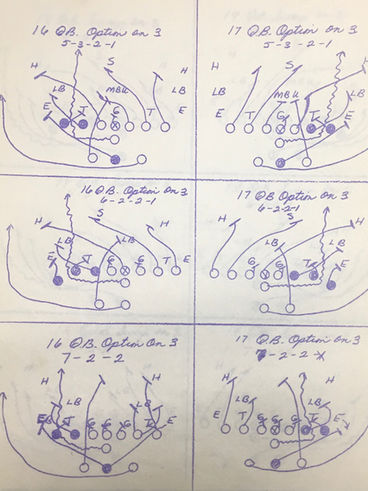 16 Q.B. Option on 3
5-3-2-1
H S H
LB MBK LB
E T G T E
17 Q.B. Option on 3
5-3-2-1
H S H
LB MBK LB
E T G T E
16 Q.B. Option on 3
6-2-2-1
H S H
LB LB
E T G G T E
17 Q.B. Option on 3
6-2-2-1
H S H
LB LB
E T G G T E
16 Q.B. Option on 3
7-2-2
H H
LB LB
E T G G G T E
17 Q.B. Option on 3
7-2-2
H H
LB LB
E T G G G T E